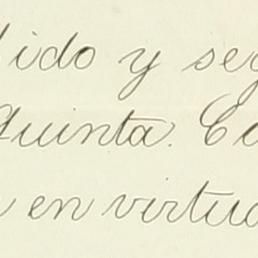 ido y seg
Quinta. Ca
en virtud